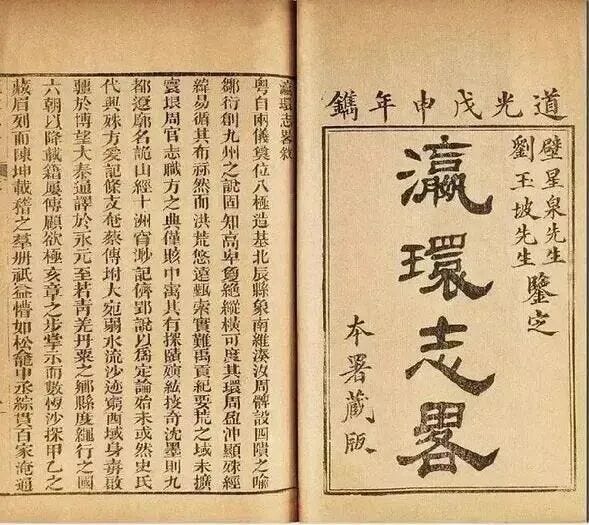 道光戊申年鐫
壁星泉先生
劉玉坡先生
鑒定
瀛環志畧
本署藏版
瀛環志畧敘
粵自兩儀奠位八極造基北辰縣象南維湊沒周髀設四隤之喻
鄒衍創九州之說固知高卑敻絶縱橫可度其環周盈沖顯殊經
緯易循其布祘然而洪荒悠遠甄索實難禹貢紀要荒之域未擴
寰垠周官志職方之典僅賅中寓其有探賾殫紘技奇沈墨則九
都遼廓名詭山經十洲窅渺記儕郢說以為定論始未或然史氏
代興殊方爰記條支奄蔡傳坿大宛弱水流沙迹窮西域身毒啟
疆於博望大秦通譯於永元至若靑羌丹粟之鄉縣度繩行之國
六朝以降載籍屢傳顧欲極亥章之步掌示而數恆沙探甲乙之
藏眉列而陳坤載稽之羣册祇益懵如松龕中丞綜貫百家淹通